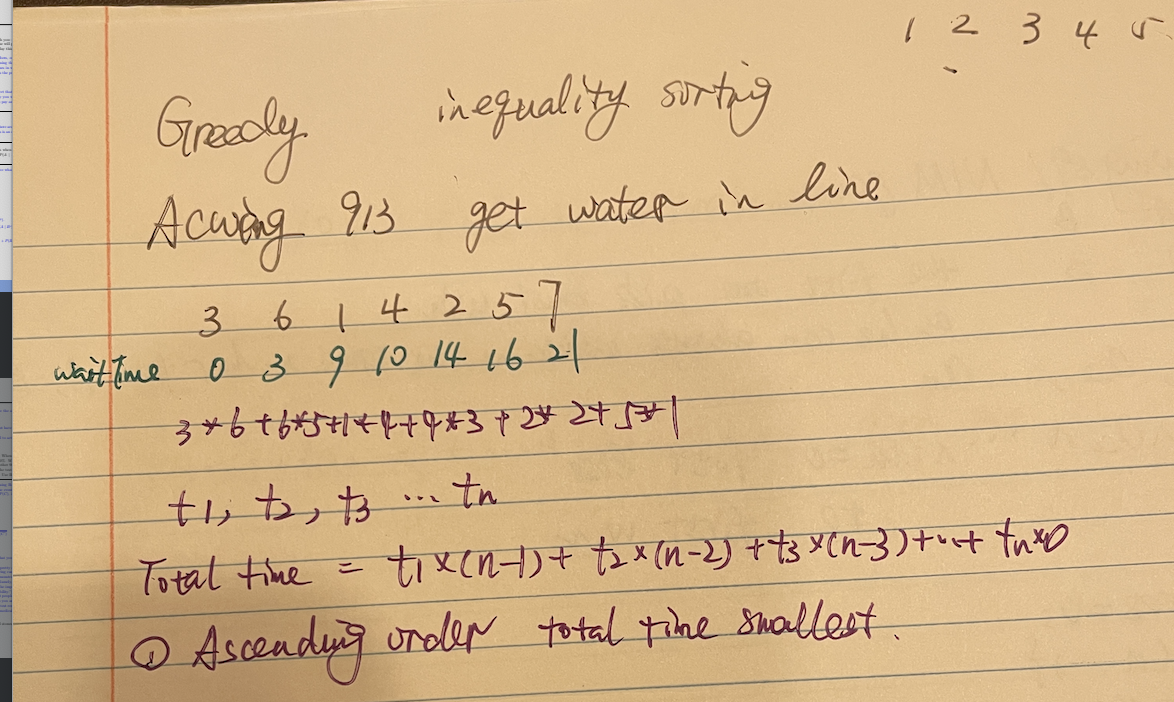 1 2 3 4 5
Greedy inequality sorting
Acwing 913 get water in line
3 6 1 4 2 5 7
wait time 0 3 9 10 14 16 21
3*6+6*5+1*4+4*3+2*2+5*1
t1, t2, t3 ... tn
Total time = t1×(n-1)+ t2×(n-2)+t3×(n-3)+...+ tn×0
① Ascending order total time smallest.